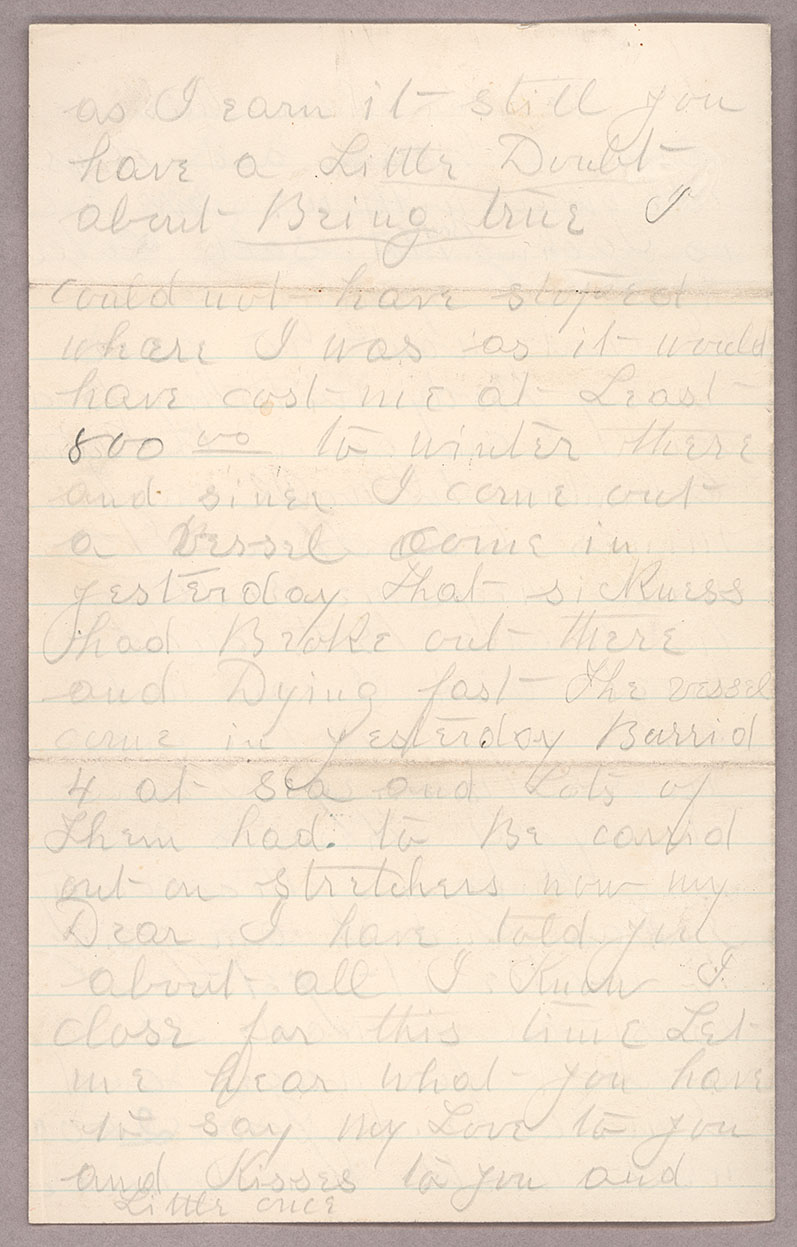 as I earn it still you
have a Little Doubt
about Being true I
could not have stoped
where I was as it would
have cost me at Least
800 00 to winter there
and since I come out
a Vessel Come in
yesterday that sickness
had Broke out there
and Dying fast The vessel
came in yesterday Burrid
4 at sea and Lots of
Them had to Be carrid
out on stretchers now my
Dear I have told you
about all I Know I
close for this time Let
me hear what you have
to say my Love to you
and Kisses to you and
Little once